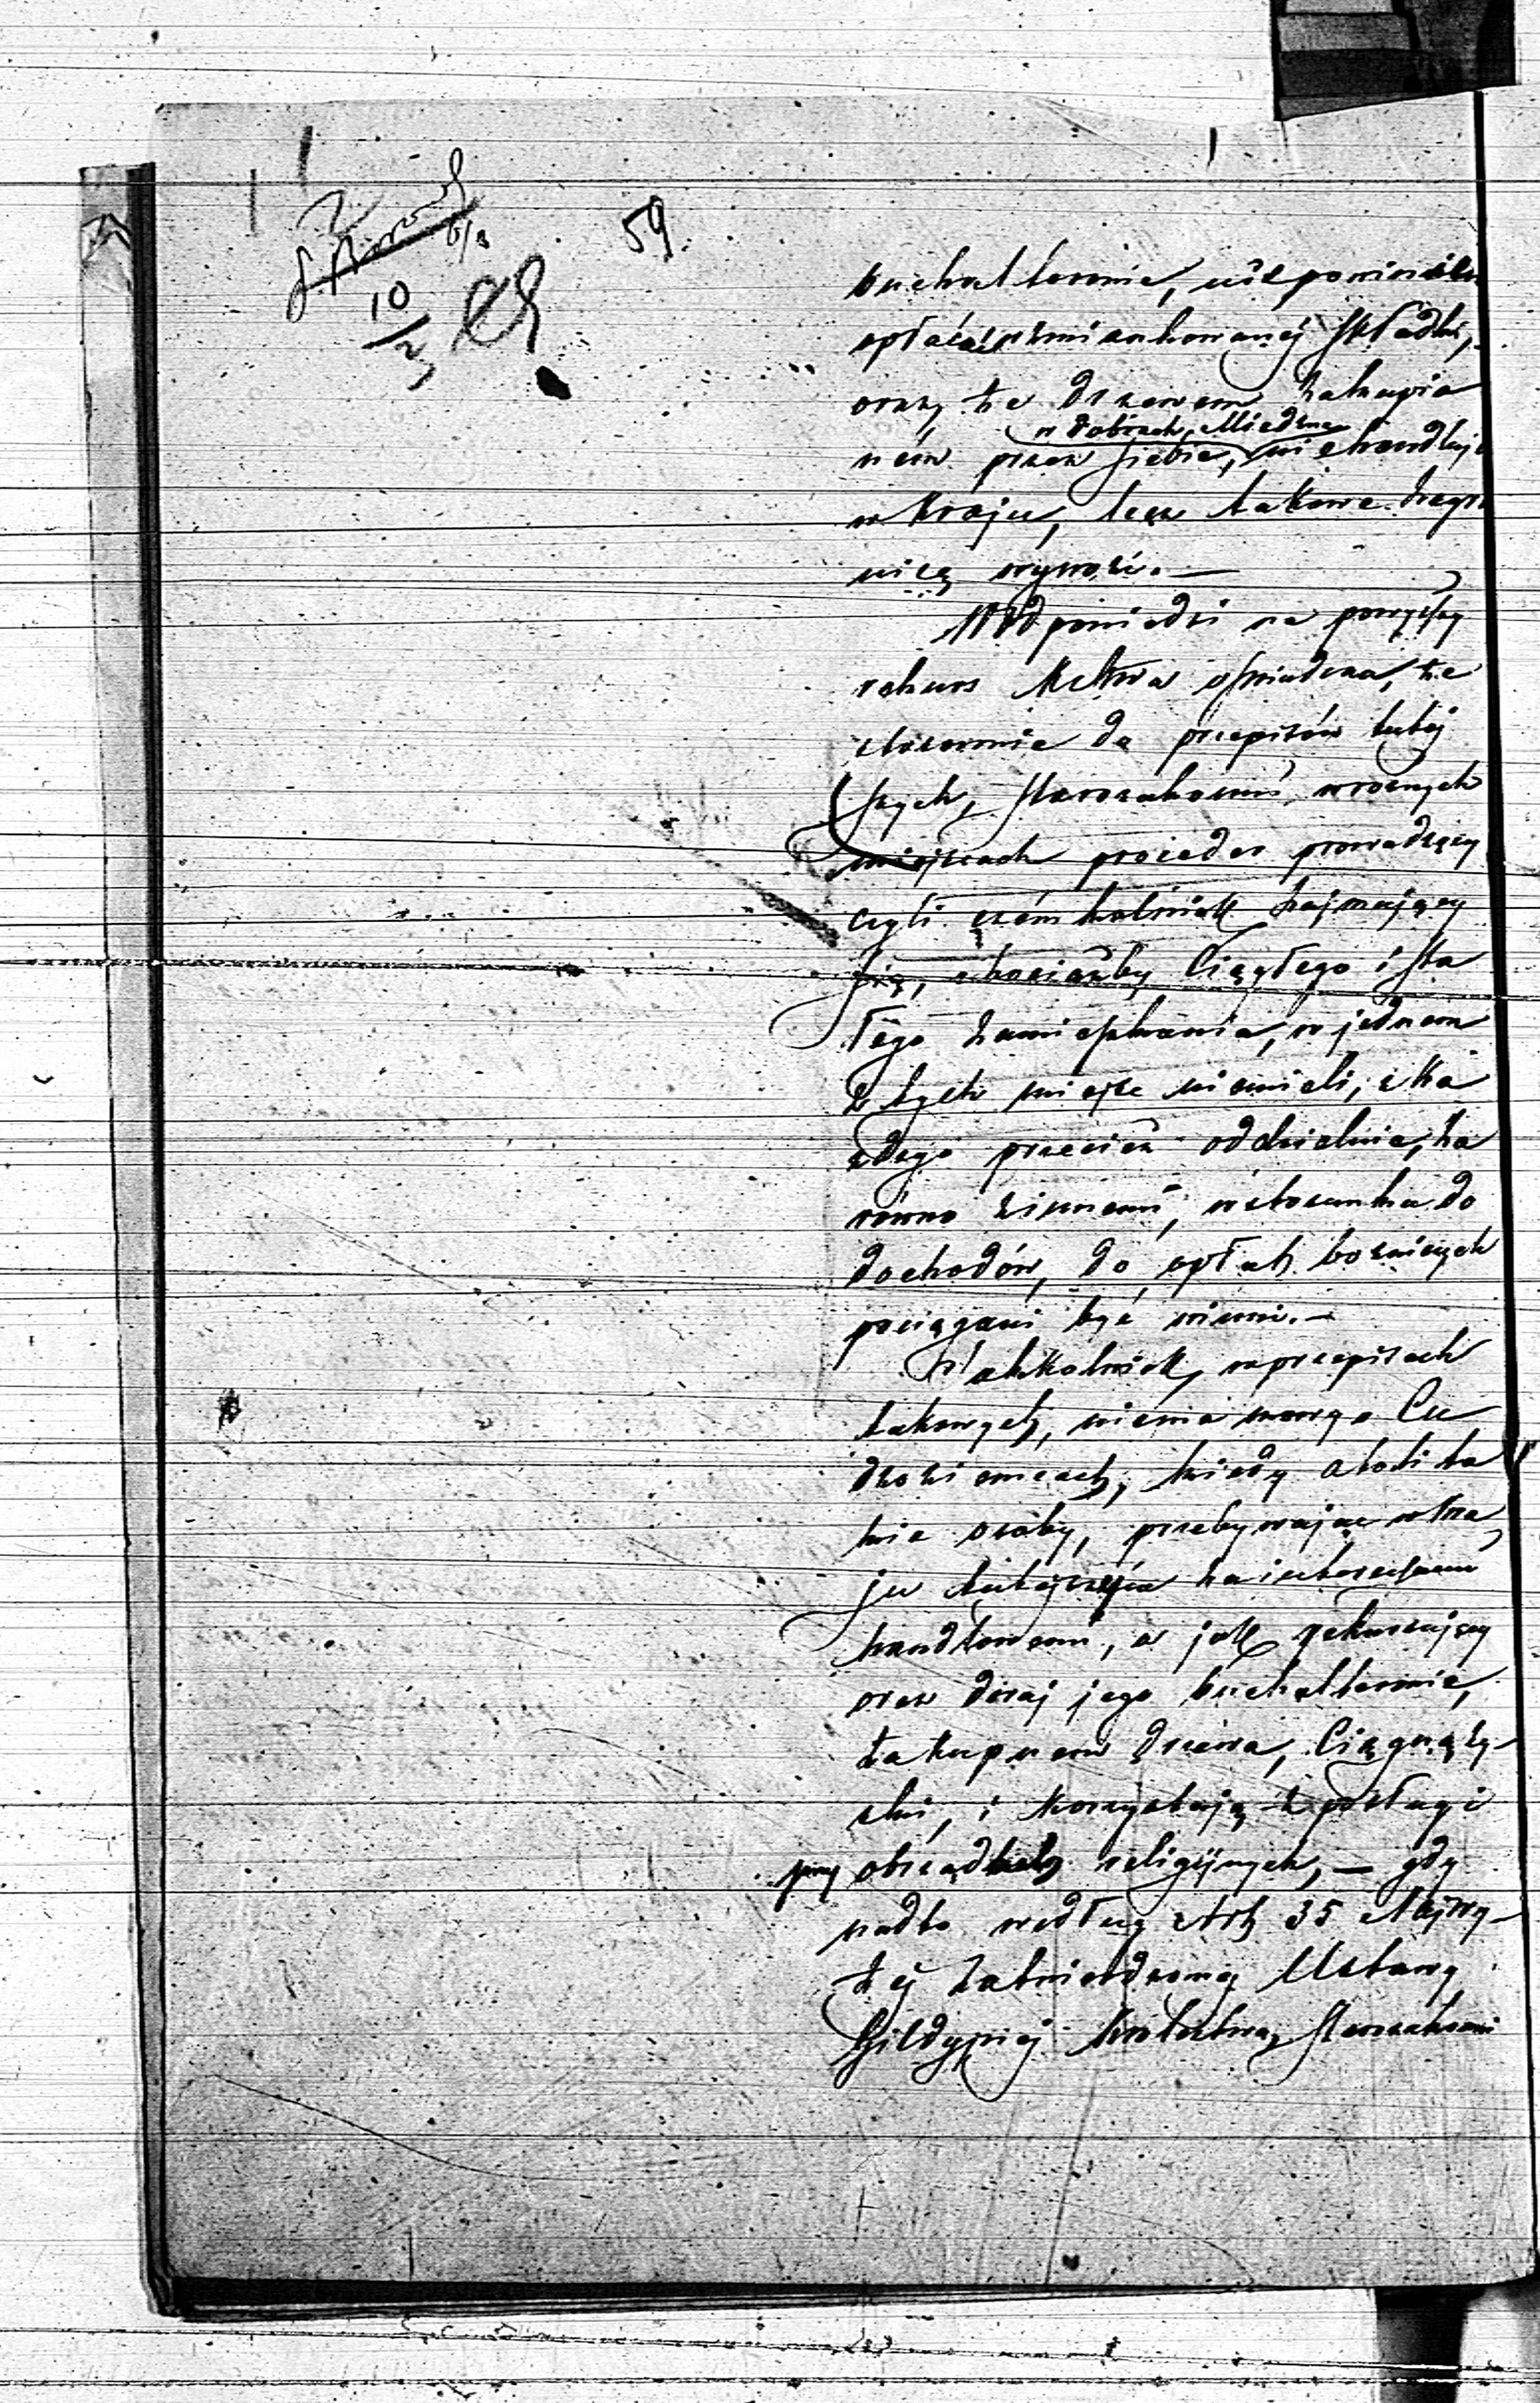 59.
10
buchalterowie, nie powinien
opłacać wzmiankowanej składki,
oraz, że drzewem zakupio
w dobrach Miedzna
nem przez siebie, nie handluje
w kraju, lecz takowe zagra
nicę wywozi. —
W odpowiedzi na powyższy
rekurs oświadcza, że
stosownie do przepisów tutej
szych, Starozakonni, w różnych
miejscach proceder prowadzący
czyli czemkolwiek zajmujący
się, chociażby ciągłego i sta
łego zamieszkania, w jednem
z tych miejsc nie mieli, z ka
żdego przecież oddzielnie, za
równo z innemi, w stosunku do
dochodów, do opłat bożniczych
pociągani być winni. —
Jakkolwiek, w przepisach
takowych, nie ma mowy o Cu
dzoziemcach, kiedy atoli ta
kie osoby, przebywając w kra
ju tutejszym za interessami
handlowemi, a jak rekurujący
oraz dwaj jego buchalterowie,
zakupnem drzewa, Ciągną zy-
ski, i korzystają z posługi
przy obrządkach religijnych, — gdy
nadto według Art 35 Najwy-
żej zatwierdzonej Ustawy
Gildyjnej Starozakonni